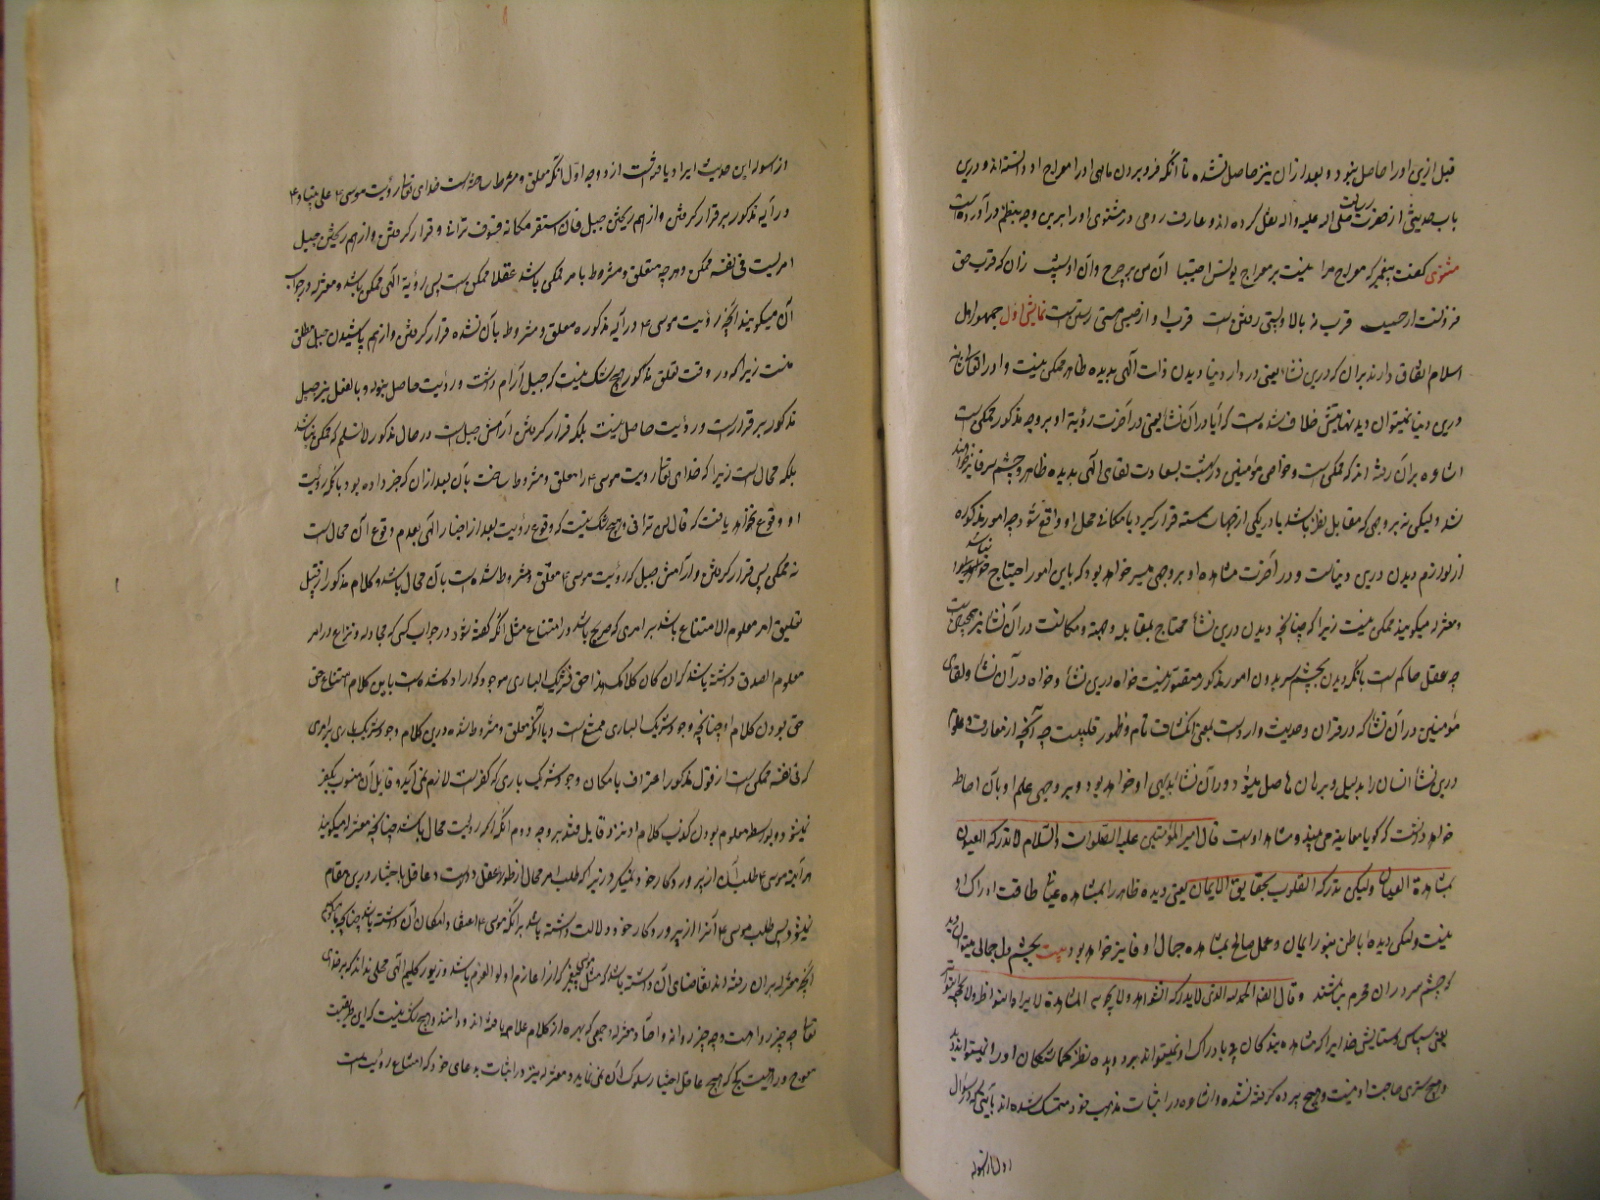 قبل ازین او را حاصل نبود و بعد از ان نیز حاصل نشده تا آنکه فرو بردن ماهی او را معراج او دانسته اند و درین
باب حدیثی از حضرت رسالت صلی الله علیه و اله نقل کرده اند و عارف رومی در مثنوی او را برین وجه بنظم در آورده است
مثنوی گفت پیغمبر که معراج مرا نیست بر معراج یونس اجتبا آن من بر چرخ و آن او بشیب زان که قرب حق
فزونست از حسیب قرب نه بالا و پستی رفتن است قرب او از حبس هستی رستن است نمایش اول جمهور اهل
اسلام اتفاق دارند بران که درین نشأ یعنی در دار دنیا دیدن ذات الهی بدیده ظاهر ممکن نیست و او را
درین دنیا نمیتوان دید نهایتش خلاف شده است که آیا در ان نشأ یعنی در آخرت رؤیة او بر وجه مذکور ممکن است
اشاعره بران رفته اند که ممکن است و خواص مؤمنین در بهشت بسعادت لقای الهی بدیده ظاهر و چشم سر فایز خواهند
شد ولیکن نه بر وجهی که مقابل نظر باشد یا در یکی از جهات سته قرار گیرد یا مکانی محل او واقع شود چه امور مذکوره
از لوازم دیدن درین دنیاست و در آخرت مشاهده او بر وجهی میسر خواهد بود که باین امور احتیاج نباشد
و معتزله میگویند ممکن نیست زیرا که چنانچه دیدن درین نشأ محتاج بمقابله و جهة و مکانست در آن نشأ نیز همچنین است
چه عقل حاکم است بانکه دیدن بچشم سر بدون امور مذکوره متصور نیست خواه درین نشأ و خواه در آن نشأ و لقای
مؤمنین در آن نشأ که در قران و حدیث وارد است بمعنی انکشاف تام و ظهور قلبیست چه آنچه از معارف و علوم
درین نشأ انسان را بدلیل و برهان حاصل میشود در آن نشأ بدیهی او خواهد بود و بر وجهی علم او بآن احاطه
خواهد داشت که گویا معاینه می بیند و مشاهد اوست قال امیر المؤمنین علیه الصلوات والسلام لا تدرکه العیون
بمشاهدة العیان ولیکن تدرکه القلوب بحقایق الایمان یعنی دیده ظاهر را بمشاهده عیان طاقت ادراک او
نیست ولکن دیده باطن بنور ایمان و عمل صالح بمشاهده جمال او فایز خواهد بود بیت بچشم دل جمالی میتوان دید
که چشم سر در ان محرم نباشد و قال ایضا الحمد لله الذی لا تدرکه الشواهد ولا تحویه المشاهد ولا تراه النواظر ولا تحجبه السواتر
یعنی سپاس و ستایش خدایرا که مشاهده بینندگان او را ادراک او نمیتوانند برد و دیده نظر کماشتکان او را نمیتوانند دید
و هیچ ستری حاجب او نیست و هیچ پرده گرفته نشده و اشاعره در اثبات مذهب خود متمسک شده اند بآیتی که در سؤال
از سؤال این حدیث ایراد یافته است از دو وجه اول آنکه معلق و مشروط ساخته است خدای تعالی رؤیت موسی ع علی نبینا و ع
در آیه مذکور بر قرار گرفتن و از هم ریختن جبل فان استقر مکانه فسوف ترانی و قرار گرفتن و از هم ریختن جبل
امریست فی نفسه ممکن و هر چه متعلق و مشروط بامر ممکن باشد عقلا ممکن است پس رؤیة الهی ممکن باشد و معتزله در جواب
آن میگویند آنچه رؤیت موسی ع در آیه مذکوره معلق و مشروط بآن شده قرار گرفتن و از هم پاشیدن جبل مطلق
نیست زیرا که در وقت تعلق مذکور هیچ شک نیست که جبل آرام داشت و رؤیت حاصل نبود و بالفعل نیز جبل
مذکور بر قرار است و رؤیت حاصل نیست بلکه قرار گرفتن و آرامش جبل است در حال مذکور لا نسلم که ممکن باشد
بلکه محال است زیرا که خدای تعالی رؤیت موسی ع را معلق و مشروط ساخت بآن بعد از ان که خبر داده بود بانکه رؤیت
او وقوع نخواهد یافت که قال لن ترانی و هیچ شک نیست که وقوع رؤیت بعد از اخبار الهی بعدم وقوع آن محال است
نه ممکن پس قرار گرفتن و آرامش جبل که رؤیت موسی ع معلق و مشروط شده است بآن محال باشد و کلام مذکور از قبیل
تعلیق امر معلوم الامتناع باشد بر امری که صریح باشد در امتناع مثل آنکه گفته شود در جواب کسی که مجادله و نزاع در امر
معلوم الصدق داشته باشد که ان کان کلامک هذا حق فشریک الباری موجود که اراده شده است باین کلام امتناع حق
حق بودن کلام او چنانچه وجود شریک الباری ممتنع است و با آنکه معلق و مشروط شده درین کلام وجود شریک باری بر امری
که فی نفسه ممکن است از قول مذکور اعتراف بامکان وجود شریک باری که کفر است لازم نمی آید و قایل آن منسوب بکفر
نمیشود و بواسطه معلوم بودن کذب کلام او نزد قایل فتدبر وجه دوم آنکه اگر رؤیت محال باشد چنانچه معتزله میگویند
هر آینه موسی ع طلب آن از پروردگار خود نمیکرد زیرا که طلب امر محال از طور عقل دور است و عاقل باختیار درین مقام
نمیشود پس طلب موسی ع آنرا از پروردگار خود دلالت داشته باشد برانکه موسی ع اعتقاد امکان آن داشته باشد
آنچه معتزله بران رفته اند تقاضای آن داشته باشد که مثل موسی پیغمبری که از اعاظم اولو العزم باشد و زیور کلیم الهی محلی نداند که بر خدای
تعالی چه چیز رواست و چه چیز روا نه و آحاد معتزله و جمعی که بهره از کلام علام یافته اند و دانند و هیچ شک نیست که این طریقت
معوج و راهیست کج که هیچ عاقل اختیار سلوک آن نمی نماید و معتزله نیز در اثبات مدعای خود که امتناع رؤیت است